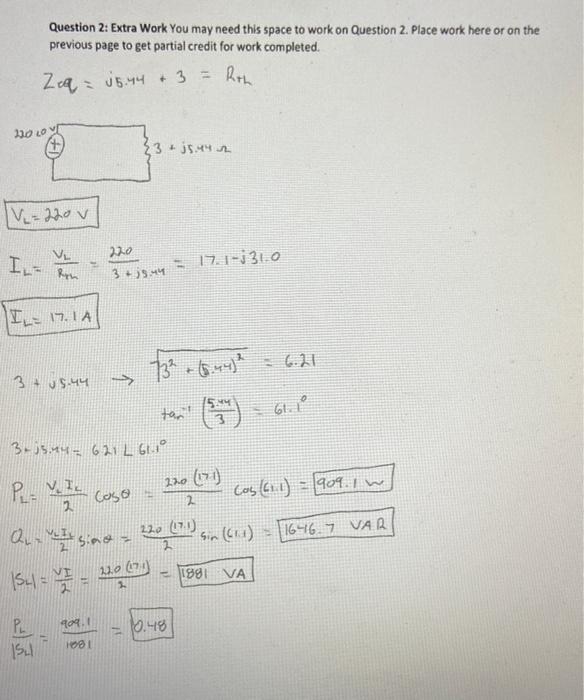 Question 2: Extra Work You may need this space to work on Question 2. Place work here or on the
previous page to get partial credit for work completed.
Zeq = j5.44 + 3 = Rth
220∠0 V
+
3 + j5.44 Ω
VL = 220 V
IL = VL / Rth = 220 / 3 + j5.44 = 17.1 - j31.0
IL = 17.1 A
3 + j5.44 → √3² + (5.44)² = 6.21
tan⁻¹ (5.44 / 3) = 61.1°
3 + j5.44 = 6.21 ∠ 61.1°
PL = VL IL / 2 cos θ = 220 (17.1) / 2 cos (61.1) = 909.1 W
QL = VL IL / 2 sin θ = 220 (17.1) / 2 sin (61.1) = 1646.7 VAR
|SL| = VI / 2 = 220 (17.1) / 2 = 1881 VA
PL / |SL| = 909.1 / 1881 = 0.48